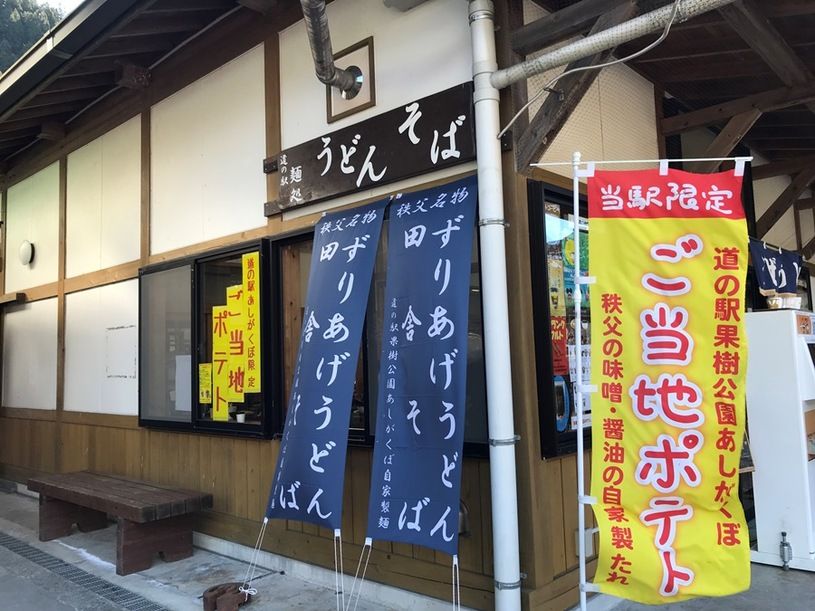 道の駅
麺処
うどん
そば
秩父名物
ずりあげうどん
田舎そば
秩父名物
ずりあげうどん
田舎そば
道の駅果樹公園あしがくぼ自家製麺
道の駅あしがくぼ限定
ご当地
ポテト
当駅限定
道の駅果樹公園あしがくぼ
ご当地ポテト
秩父の味噌・醤油の自家製たれ